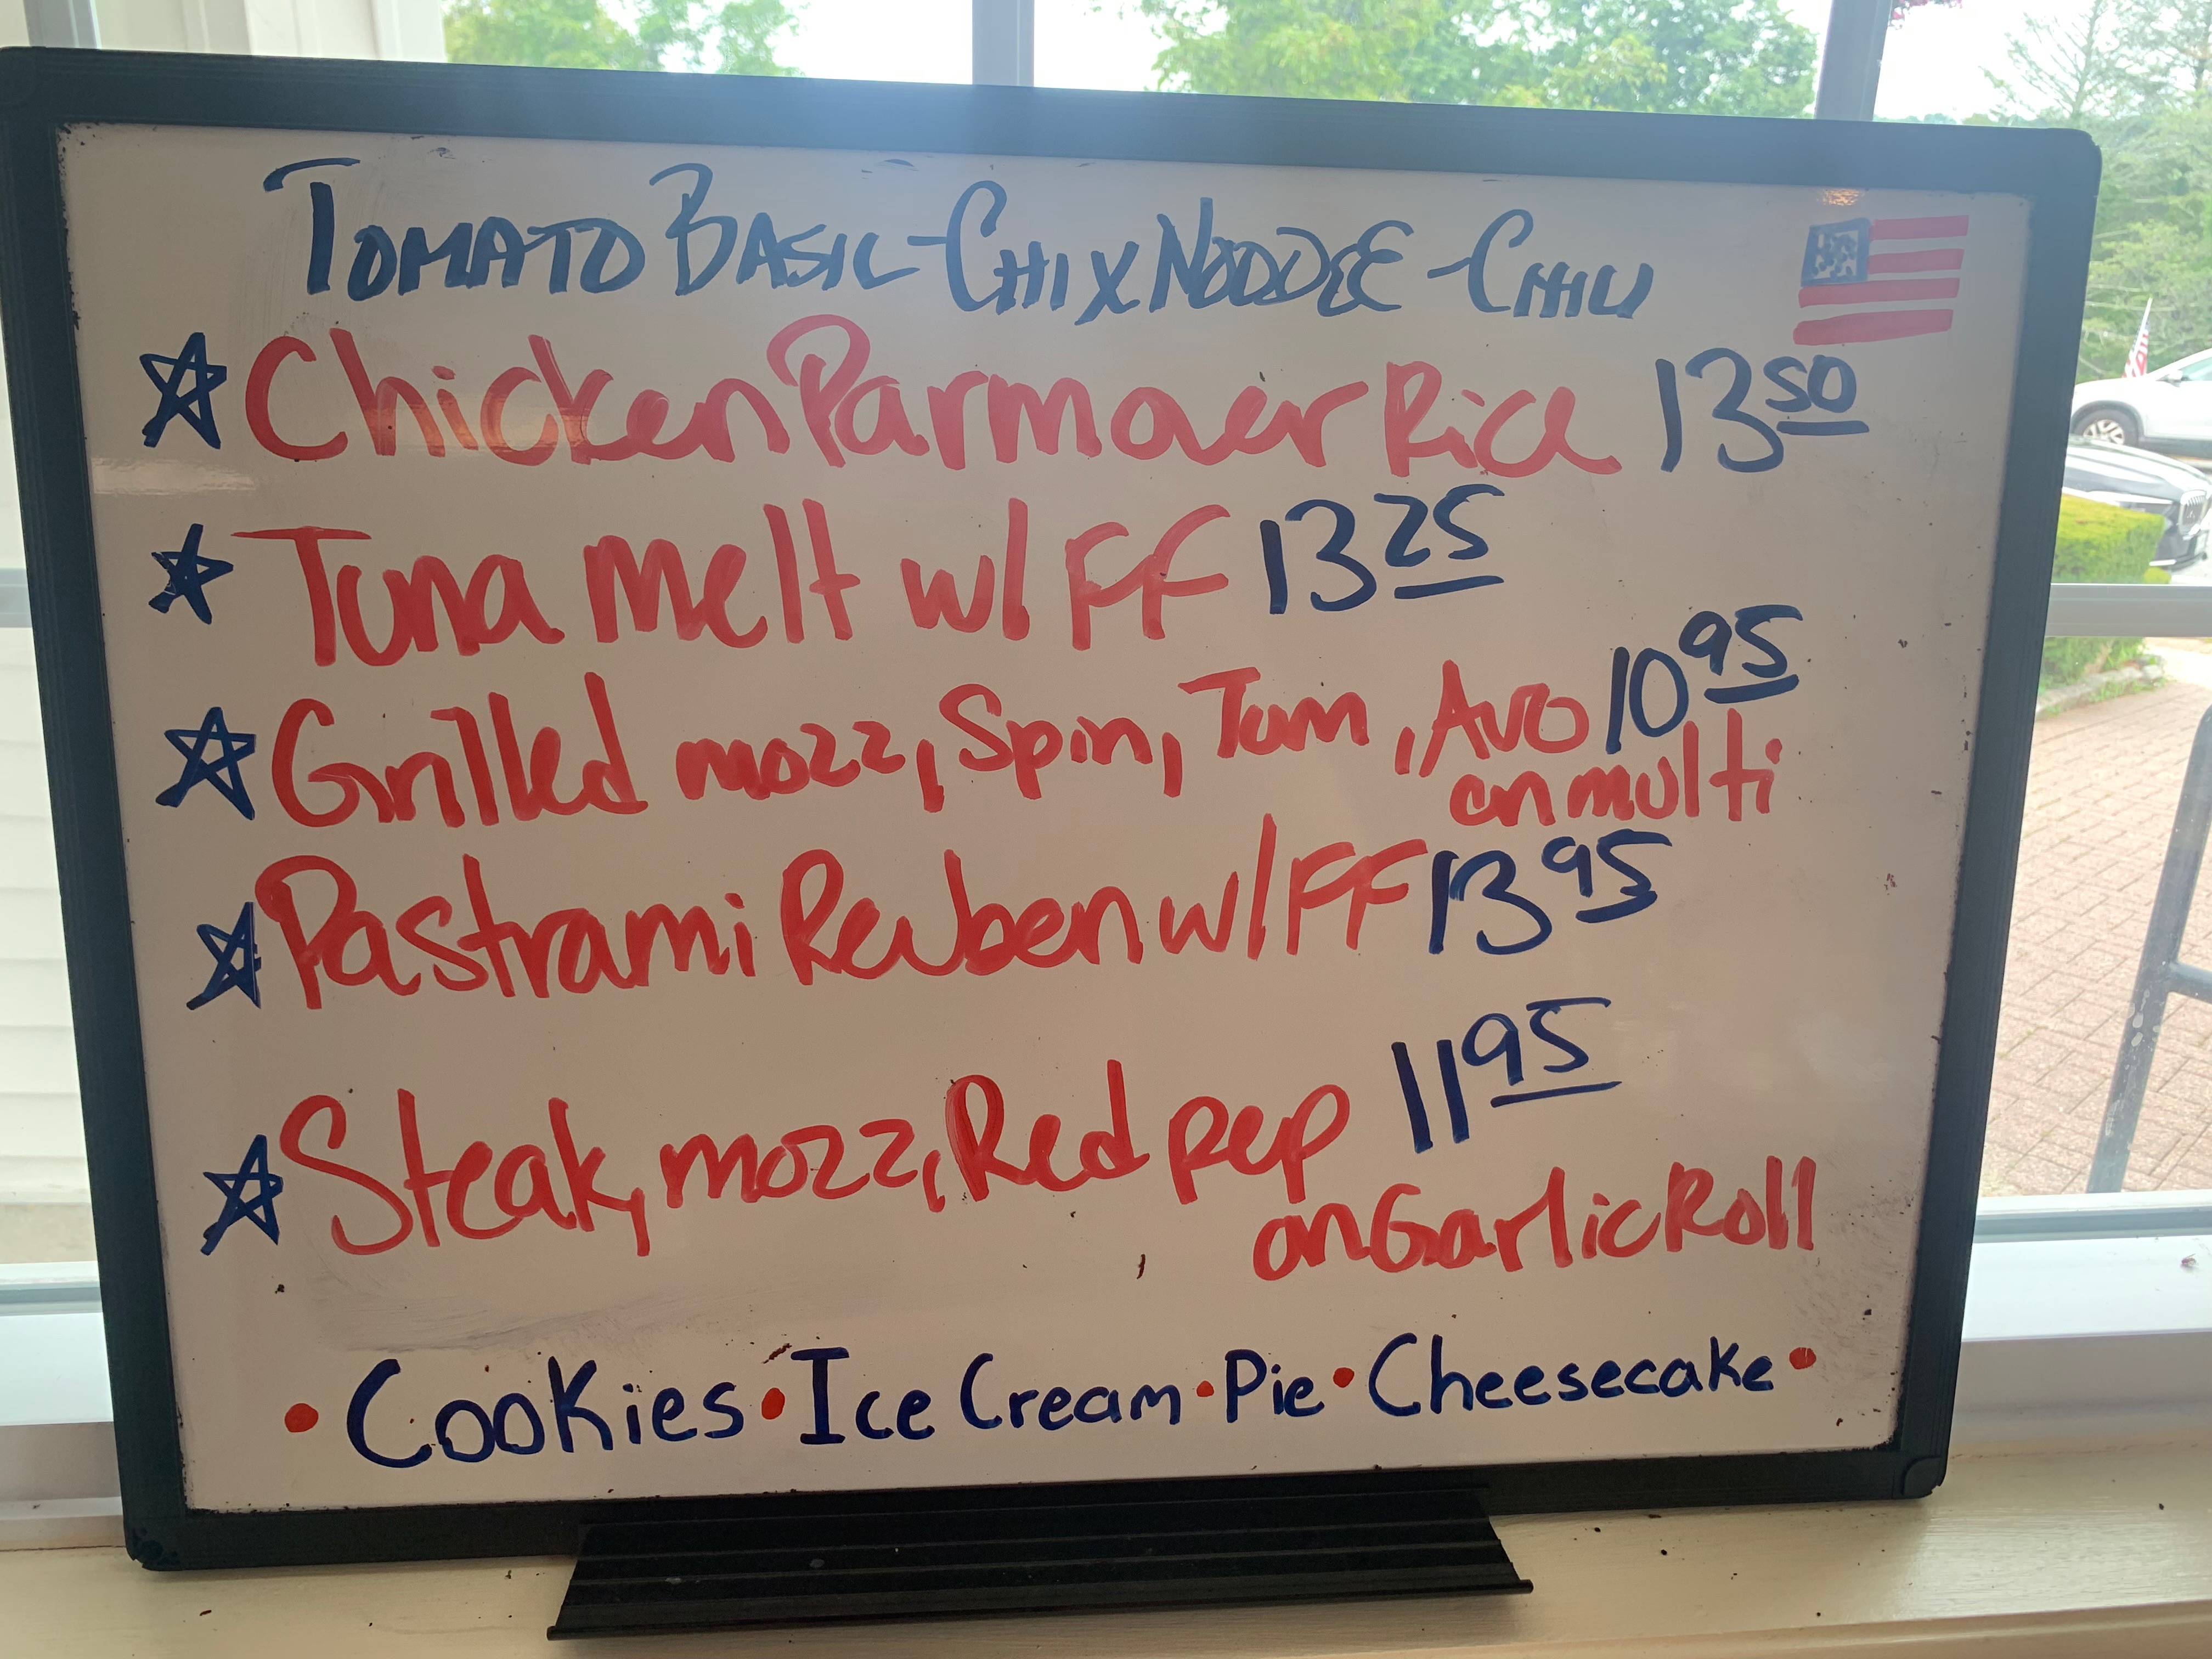 TOMATO BASIL - CHIX NOODLE - CHILI
Chicken Parm over Rice 13 50
Tuna melt w/ FF 13 25
Grilled mozz, Spin, Tom, Avo 10 95
on multi
Pastrami Reuben w/ FF 13 95
Steak, mozz, Red pep 11 95
on Garlic Roll
• Cookies • Ice Cream • Pie • Cheesecake •